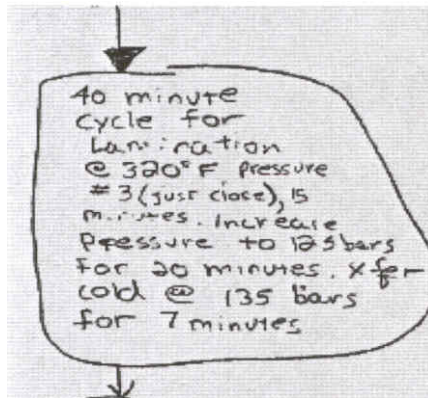 40 minute
cycle for
Lamination
@ 320° F pressure
# 3 (just close), 15
minutes. Increase
pressure to 125 bars
for 20 minutes. xfer
cold @ 135 bars
for 7 minutes